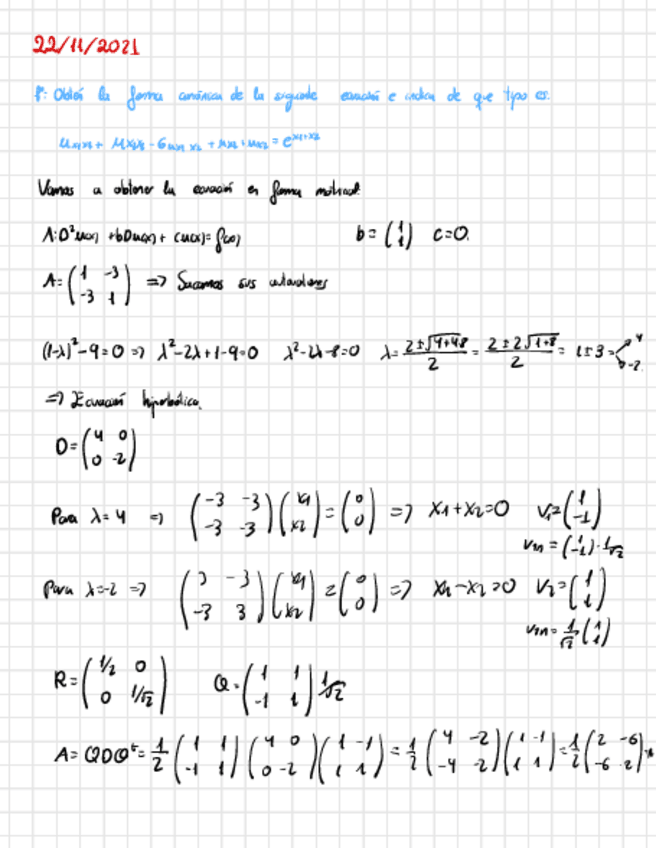 22/11/2021
f: Obtén la forma canónica de la siguiente ecuación e indica de que tipo es:
u_{x1x1} + u_{x2x2} - 6u_{x1x2} + u_{x1} + u_{x2} = e^{x1+x2}
Vamos a obtener la ecuación en forma matricial
A:D²u(x) + bDu(x) + cu(x) = f(x) b = (1 1) c=0.
A = (1 -3 / -3 1) => Sacamos sus autovalores
(1-λ)² - 9 = 0 => λ² - 2λ + 1 - 9 = 0 λ² - 2λ - 8 = 0 λ = (2 ± √(4+4·8))/2 = (2 ± 2√(1+8))/2 = 1 ± 3 = 4, -2
=> Ecuación hiperbólica.
D = (4 0 / 0 -2)
Para λ=4 => (-3 -3 / -3 -3) (x1 / x2) = (0 / 0) => x1+x2=0 v1 = (1 / -1)
v1n = (1 / -1) · 1/√2
Para λ=-2 => (3 -3 / -3 3) (x1 / x2) = (0 / 0) => x1-x2=0 v2 = (1 / 1)
v2n = 1/√2 (1 / 1)
R = (1/2 0 / 0 1/√2) Q = (1 1 / -1 1) 1/√2
A = QDQᵗ = 1/2 (1 1 / -1 1) (4 0 / 0 -2) (1 -1 / 1 1) = 1/2 (4 -2 / -4 -2) (1 -1 / 1 1) = 1/2 (2 -6 / -6 2)